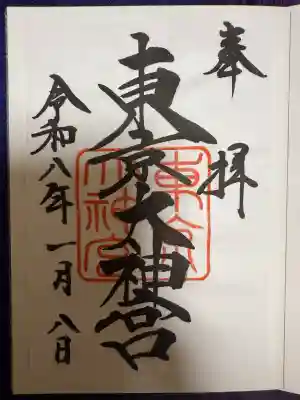 奉拝
東京大神宮
令和八年一月八日
東京大神宮